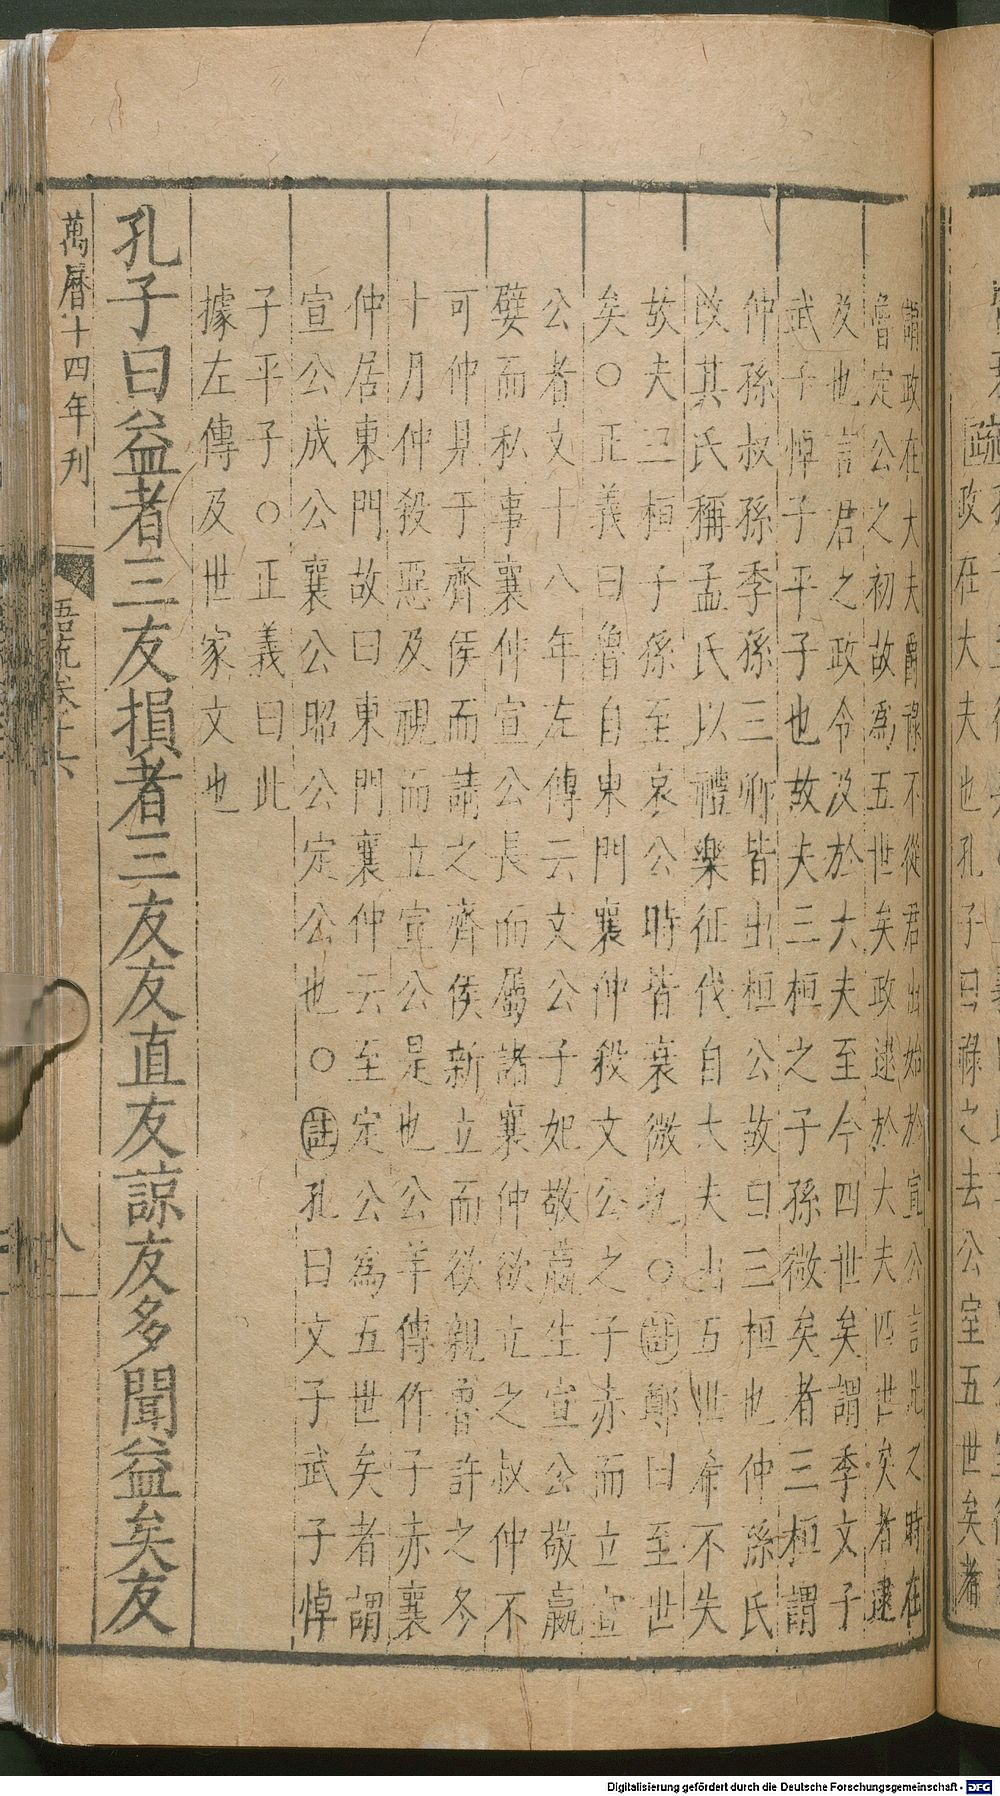 政在大夫也孔子曰祿之去公室五世矣者
謂政在大夫爵祿不從君出始於宣公言此之時在
魯定公之初故為五世矣政逮於大夫四世矣者逮
及也言君之政令及於大夫至今四世矣謂季文子
武子悼子平子也故夫三桓之子孫微矣者三桓謂
仲孫叔孫季孫三卿皆出桓公故曰三桓也仲孫氏
改其氏稱孟氏以禮樂征伐自大夫出五世希不失
故夫三桓子孫至哀公時皆衰微也○註鄭曰至世
矣○正義曰魯自東門襄仲殺文公之子赤而立宣
公者文十八年左傳云文公子妃敬嬴生宣公敬嬴
嬖而私事襄仲宣公長而屬諸襄仲欲立之叔仲不
可仲見于齊侯而請之齊侯新立而欲親魯許之冬
十月仲殺惡及視而立宣公是也公羊傳作子赤襄
仲居東門故曰東門襄仲云至定公為五世矣者謂
宣公成公襄公昭公定公也○註孔曰文子武子悼
子平子○正義曰此
據左傳及世家文也
孔子曰益者三友損者三友友直友諒友多聞益矣友
萬曆十四年刊
語疏卷十六
八
Digitalisierung gefördert durch die Deutsche Forschungsgemeinschaft - DFG